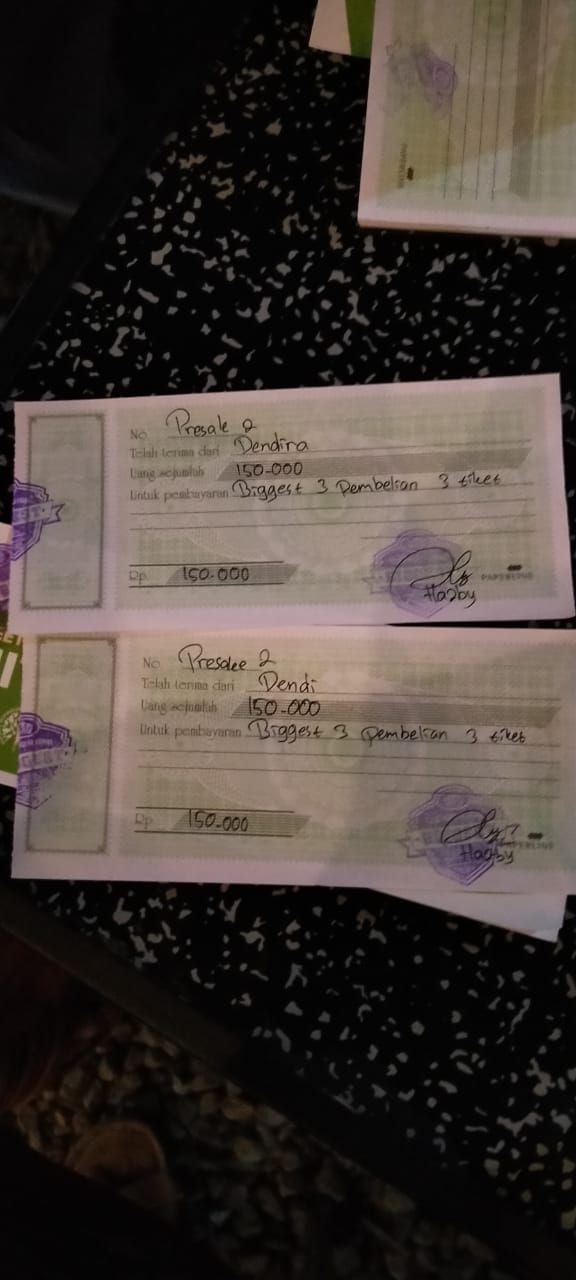 No Presale 2
Telah terima dari Dendira
Uang sejumlah 150.000
Untuk pembayaran Biggest 3 Pembelian 3 tiket
Rp 150.000
PAPERLINE
Hagby
No Presalee 2
Telah terima dari Dendi
Uang sejumlah 150.000
Untuk pembayaran Biggest 3 pembelian 3 tiket
Rp 150.000
PAPERLINE
Hagby